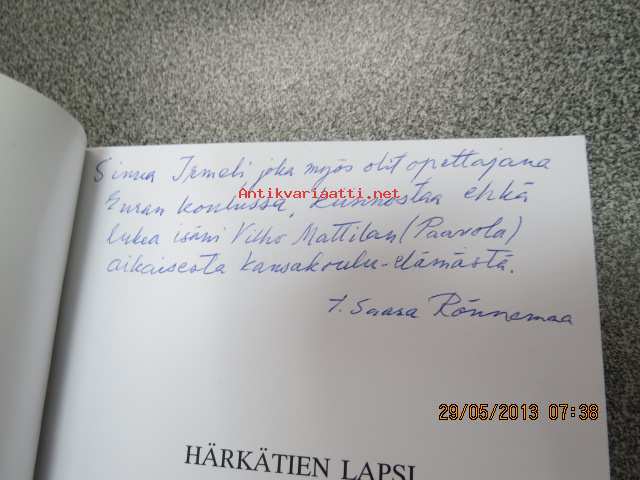 Sinua Irmeli joka myös olit opettajana
Antikvariaatti.net
Euran koulussa, kiinnostaa ehkä
lukea isäni Vilho Mattilan (Paavola)
aikaisesta kansakoulu-elämästä.
t. Saara Rönnemaa
29/05/2013 07:38
HÄRKÄTIEN LAPSI